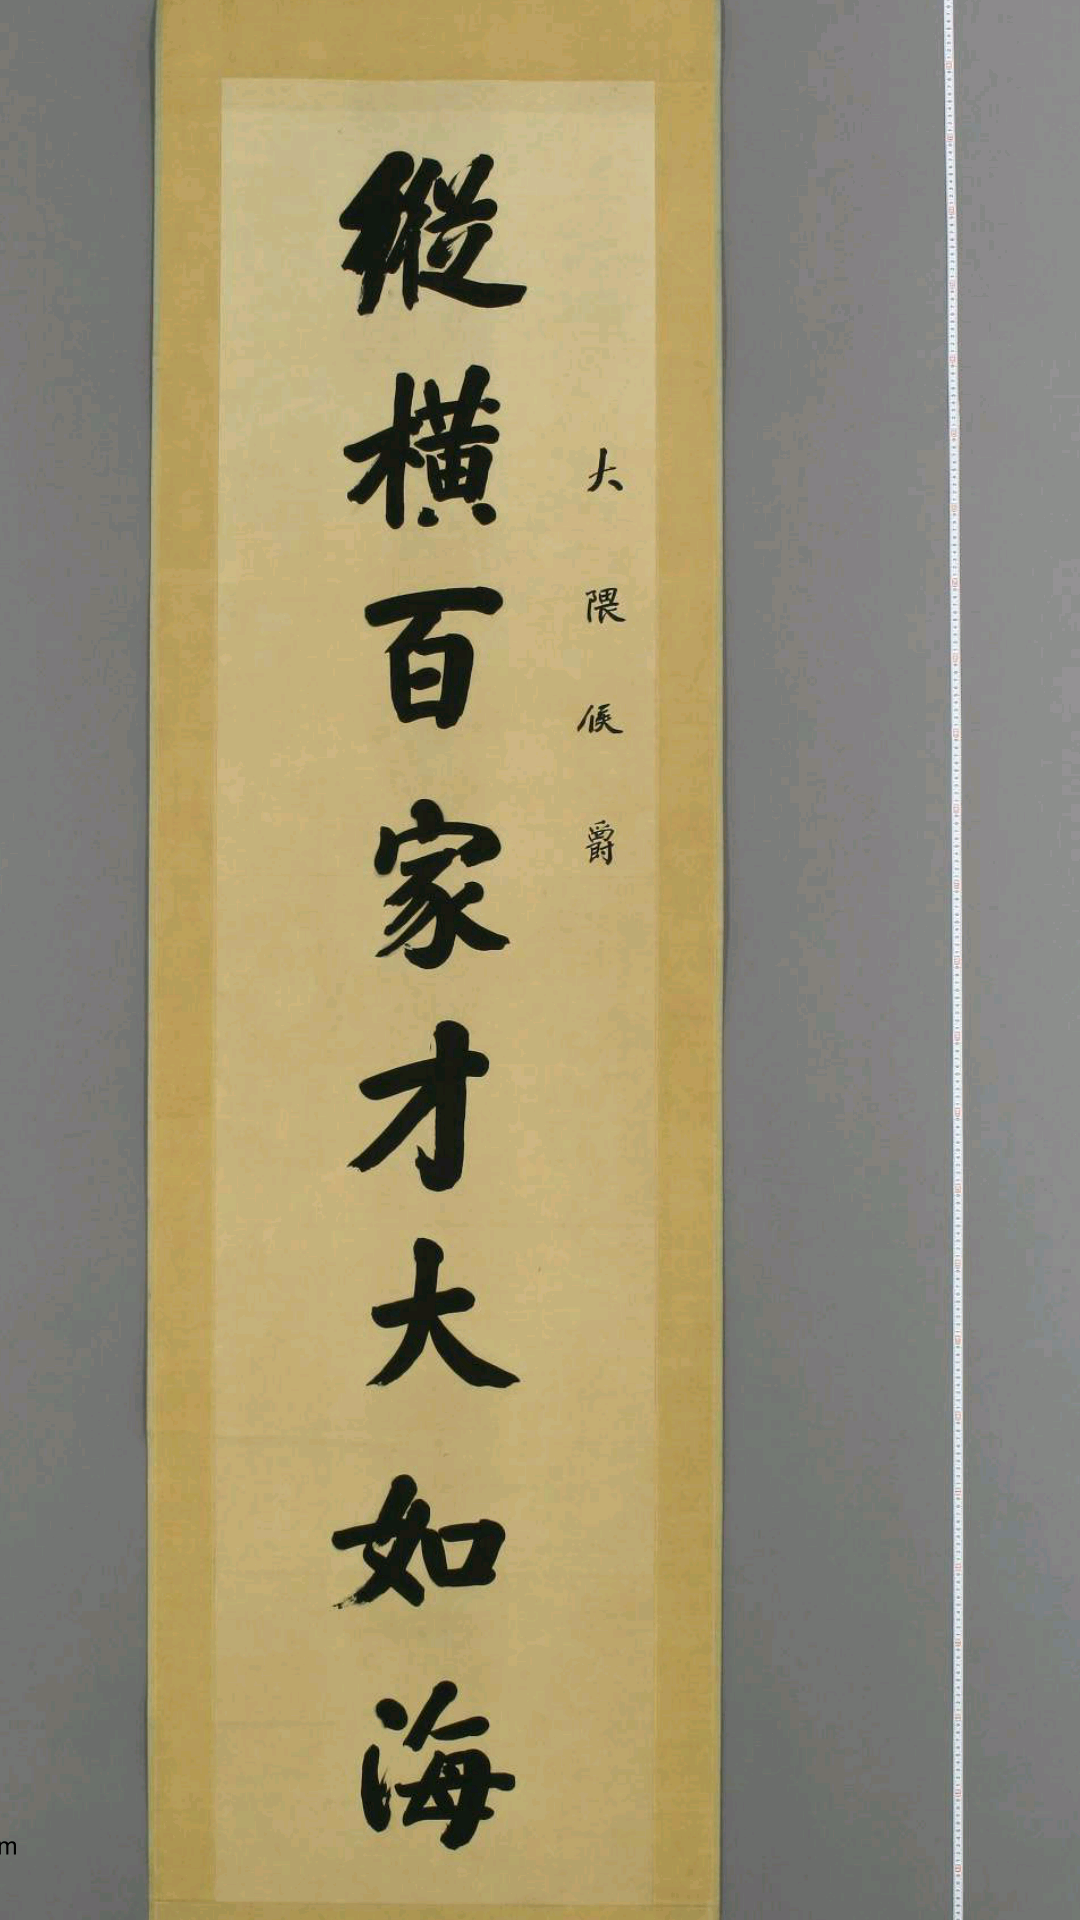 大隈侯爵
縱橫百家才大如海
m